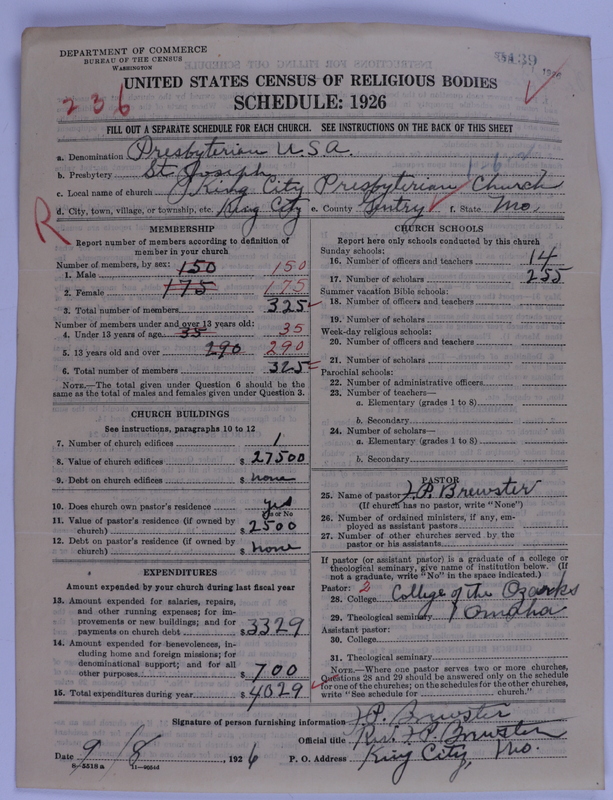 DEPARTMENT OF COMMERCE
BUREAU OF THE CENSUS
WASHINGTON
UNITED STATES CENSUS OF RELIGIOUS BODIES
236
SCHEDULE: 1926
FILL OUT A SEPARATE SCHEDULE FOR EACH CHURCH. SEE INSTRUCTIONS ON THE BACK OF THIS SHEET
a. Denomination Presbyterian U.S.A.
b. Presbytery St Joseph
c. Local name of church King City Presbyterian Church
d. City, town, village, or township, etc. King City e. County Gentry f. State Mo.
R
MEMBERSHIP
Report number of members according to definition of
member in your church
Number of members, by sex:
1. Male 150 150
2. Female 175 175
3. Total number of members 325
Number of members under and over 13 years old:
4. Under 13 years of age 35 35
5. 13 years old and over 290 290
6. Total number of members 325
NOTE.—The total given under Question 6 should be the
same as the total of males and females given under Question 3.
CHURCH BUILDINGS
See instructions, paragraphs 10 to 12
7. Number of church edifices 1
8. Value of church edifices $ 27500
9. Debt on church edifices $ none
10. Does church own pastor's residence yes
Yes or No
11. Value of pastor's residence (if owned by
church) $ 2500
12. Debt on pastor's residence (if owned by
church) $ none
EXPENDITURES
Amount expended by your church during last fiscal year
13. Amount expended for salaries, repairs,
and other running expenses; for im-
provements or new buildings; and for
payments on church debt $ 3329
14. Amount expended for benevolences, in-
cluding home and foreign missions; for
denominational support; and for all
other purposes $ 700
15. Total expenditures during year $ 4029
CHURCH SCHOOLS
Report here only schools conducted by this church
Sunday schools:
16. Number of officers and teachers 14
17. Number of scholars 255
Summer vacation Bible schools:
18. Number of officers and teachers
19. Number of scholars
Week-day religious schools:
20. Number of officers and teachers
21. Number of scholars
Parochial schools:
22. Number of administrative officers
23. Number of teachers—
a. Elementary (grades 1 to 8)
b. Secondary
24. Number of scholars—
a. Elementary (grades 1 to 8)
b. Secondary
PASTOR
25. Name of pastor J.P. Brewster
(If church has no pastor, write "None")
26. Number of ordained ministers, if any, em-
ployed as assistant pastors
27. Number of other churches served by the
pastor or his assistants
If pastor (or assistant pastor) is a graduate of a college or
theological seminary, give name of institution below. (If
not a graduate, write "No" in the space indicated.)
Pastor: 2
28. College College of the Ozarks
29. Theological seminary Omaha
Assistant pastor:
30. College
31. Theological seminary
NOTE.—Where one pastor serves two or more churches,
Questions 28 and 29 should be answered only on the schedule
for one of the churches; on the schedules for the other churches,
write "See schedule for church."
Signature of person furnishing information J.P. Brewster
Official title Rev. J.P. Brewster
Date 9/8, 1926 P. O. Address King City, Mo.
8-5518a 11-9054d